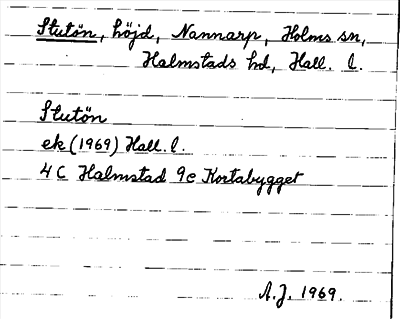 Slutön, höjd, Nannarp, Holms sn,
Halmstads hd, Hall. l.
Slutön
ek (1969) Hall. l.
4 C Halmstad 9e Kortabygget
A.J. 1969.